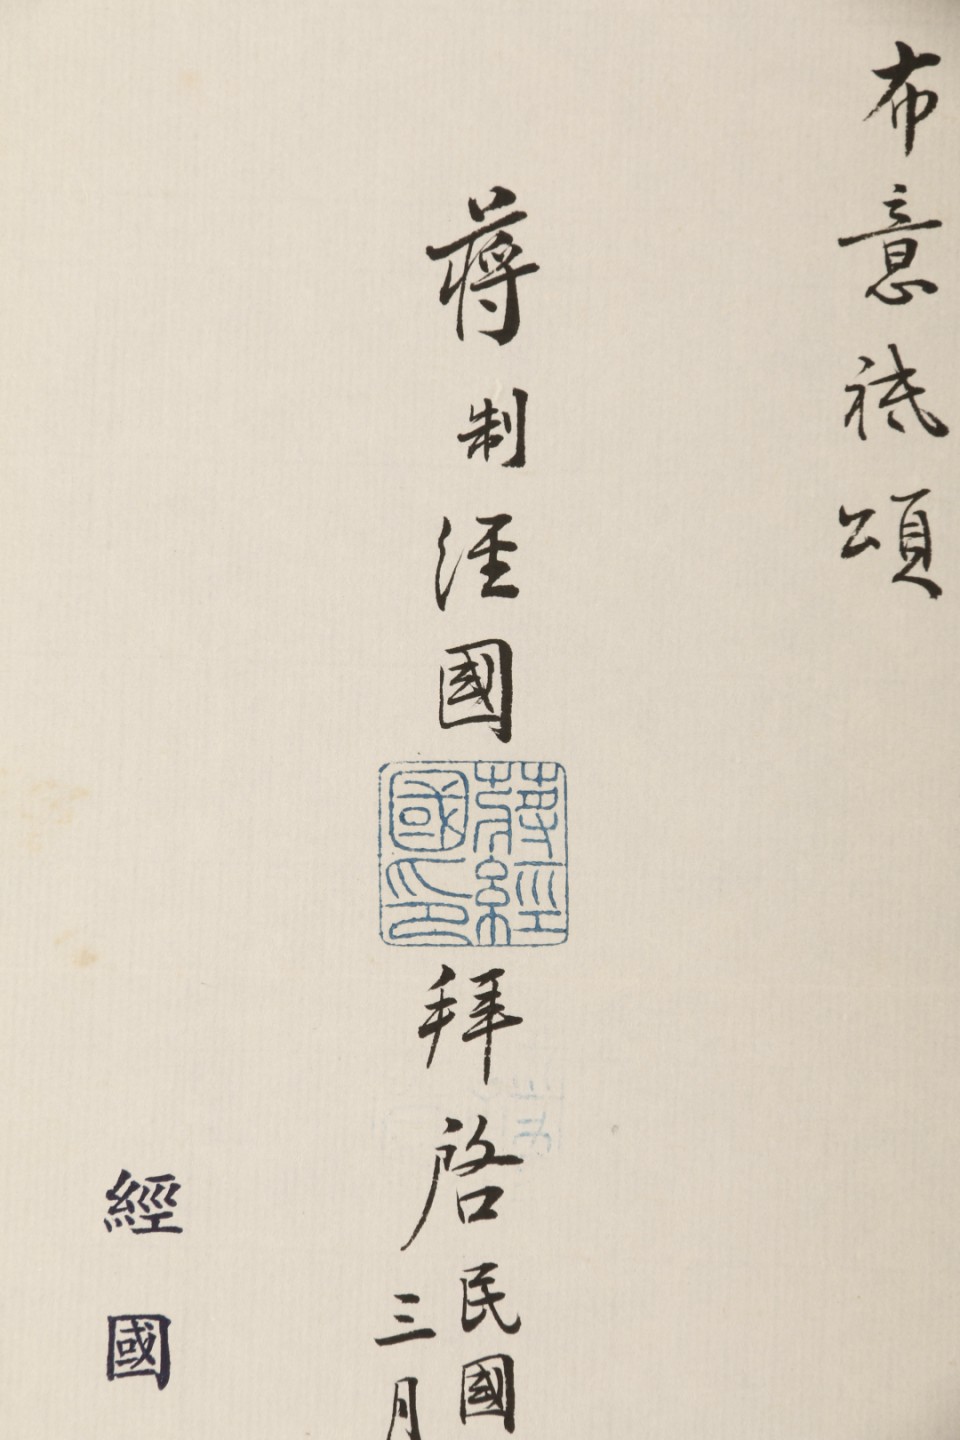 布意祗頌
蔣制經國
蔣經國印
拜啓民國
三月
經國